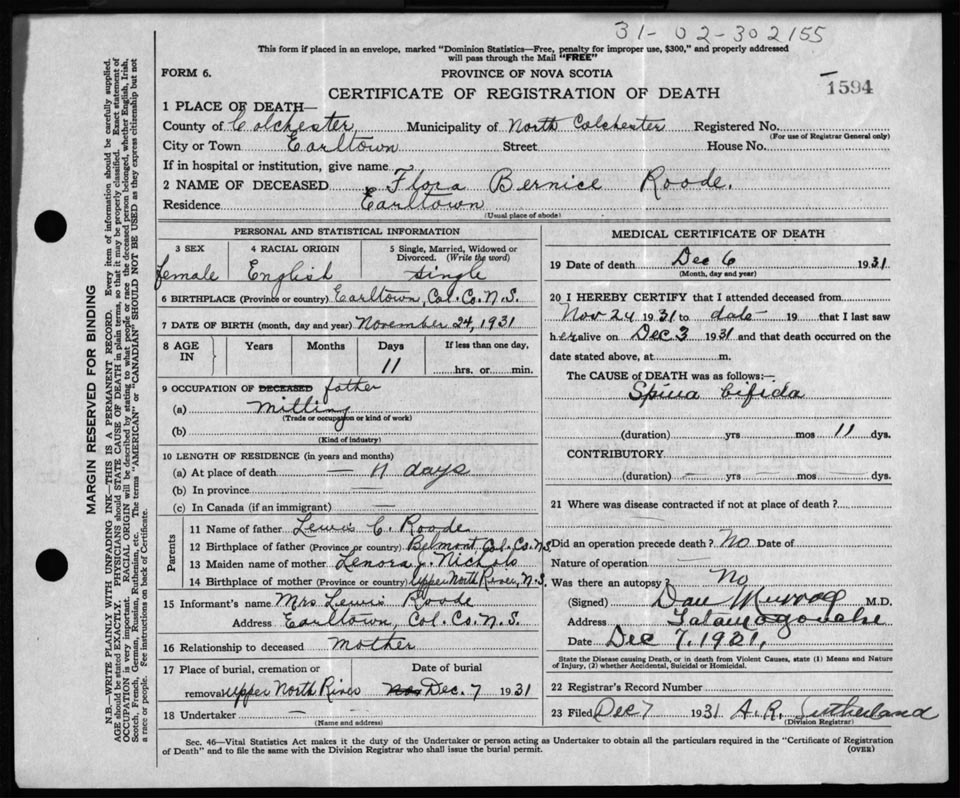 31-02-302155
This form if placed in an envelope, marked "Dominion Statistics—Free, penalty for improper use, $300," and properly addressed
will pass through the Mail "FREE"
FORM 6.
PROVINCE OF NOVA SCOTIA
1594
CERTIFICATE OF REGISTRATION OF DEATH
1 PLACE OF DEATH—
County of Colchester Municipality of North Colchester Registered No.
(For use of Registrar General only)
City or Town Earltown Street House No.
If in hospital or institution, give name
2 NAME OF DECEASED Flora Bernice Roode.
Residence Earltown
(Usual place of abode)
PERSONAL AND STATISTICAL INFORMATION
3 SEX 4 RACIAL ORIGIN 5 Single, Married, Widowed or
Divorced. (Write the word)
female English single
6 BIRTHPLACE (Province or country) Earltown, Col. Co. N.S.
7 DATE OF BIRTH (month, day and year) November 24, 1931
8 AGE IN Years Months Days If less than one day,
11 hrs. or min.
9 OCCUPATION OF DECEASED father
(a) Milling
(Trade or occupation or kind of work)
(b)
(Kind of industry)
10 LENGTH OF RESIDENCE (in years and months)
(a) At place of death — 11 days
(b) In province —
(c) In Canada (if an immigrant) —
Parents
11 Name of father Lewis C. Roode
12 Birthplace of father (Province or country) Belmont, Col. Co. N.S.
13 Maiden name of mother Lenora J. Nichols
14 Birthplace of mother (Province or country) Upper North River, N.S.
15 Informant's name Mrs Lewis Roode
Address Earltown, Col. Co. N.S.
16 Relationship to deceased mother
17 Place of burial, cremation or Date of burial
removal Upper North River Nov Dec. 7 1931
18 Undertaker — —
(Name and address)
MEDICAL CERTIFICATE OF DEATH
19 Date of death Dec 6 1931
(Month, day and year)
20 I HEREBY CERTIFY that I attended deceased from
Nov 24 1931 to date 19 that I last saw
her alive on Dec 3 1931 and that death occurred on the
date stated above, at m.
The CAUSE of DEATH was as follows:—
Spina bifida
(duration) yrs mos 11 dys.
CONTRIBUTORY
(duration) yrs mos dys.
21 Where was disease contracted if not at place of death?
Did an operation precede death? No Date of
Nature of operation —
Was there an autopsy? No
(Signed) Dan Murray M.D.
Address Tatamagouche
Date Dec 7, 1931,
State the Disease causing Death, or in death from Violent Causes, state (1) Means and Nature
of Injury, (2) whether Accidental, Suicidal or Homicidal.
22 Registrar's Record Number
23 Filed Dec 7 1931 A.R. Sutherland
(Division Registrar)
Sec. 46—Vital Statistics Act makes it the duty of the Undertaker or person acting as Undertaker to obtain all the particulars required in the "Certificate of Registration
of Death" and to file the same with the Division Registrar who shall issue the burial permit.
(OVER)
MARGIN RESERVED FOR BINDING
N.B.—WRITE PLAINLY WITH UNFADING INK—THIS IS A PERMANENT RECORD. Every item of information should be carefully supplied.
AGE should be stated EXACTLY. PHYSICIANS should STATE CAUSE OF DEATH in plain terms, so that it may be properly classified. Exact statement of
OCCUPATION is very important. RACIAL ORIGIN will be described by stating to what people or race the deceased person belonged, whether English, Irish,
Scotch, French, German, Russian, Ruthenian, etc. The terms "AMERICAN" or "CANADIAN" SHOULD NOT BE USED as they express citizenship but not
a race or people. See instructions on back of Certificate.